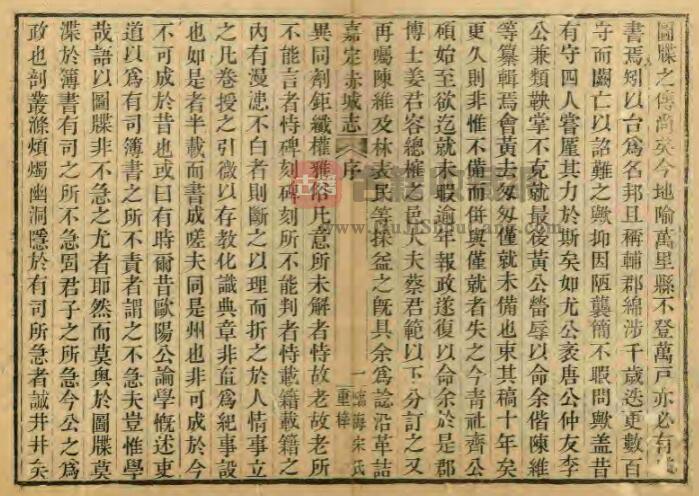 圖牒之傳尚矣今地險萬里縣不登萬戶亦必有
書焉矧以台爲名邦且稱輔郡綿涉千歲迭更數百
守而闕亡以詔難之歟抑因陋襲簡不暇問歟蓋昔
有守四人嘗屢其力於斯矣如尤公袤唐公仲友李
公兼類鞅掌不克就最後黃公㽦辱以命余偕陳維
等纂輯焉會黃去匆匆僅就未備也東其稿十年矣
更久則非惟不備而併與僅就者失之今青社齊公
碩始至欲迄就未暇逾年報政遂復以命余於是郡
博士姜君容總榷之邑大夫蔡君範以下分訂之又
再囑陳維及林表民等採益之旣具余爲諗沿革詰
嘉定赤城志
序
一
臨海宋氏
重梓
異同劑鉅纖權雅俗凡意所未解者恃故老故老所
不能言者恃碑刻碑刻所不能判者恃載籍載籍之
內有漫漶不白者則斷之以理而折之於人情事立
之凡卷授之引微以存教化識典章非直爲紀事設
也如是者半載而書成嗟夫同是州也非可成於今
不可成於昔也或曰有時爾昔歐陽公論學慨述吏
道以爲有司簿書之所不責者謂之不急夫豈惟學
哉語以圖牒非不急之尤者耶然而莫輿於圖牒莫
渫於簿書有司之所不急固君子之所急今公之爲
政也剖叢滌煩燭幽洞隱於有司所急者誠井井矣